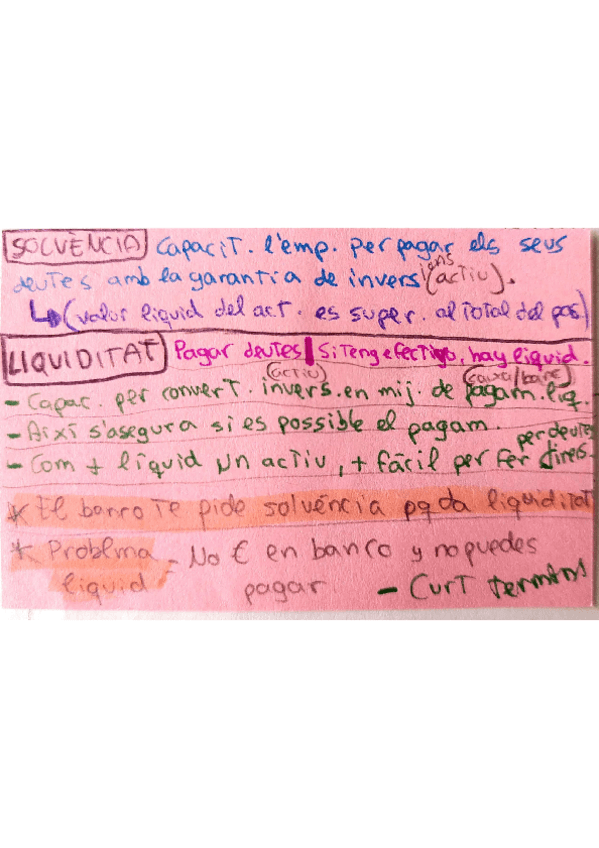 SOLVÈNCIA Capacit. l'emp. per pagar els seus
deutes amb la garantia de inversions (actiu).
↳ (valor liquid del act. es super. al total del pas.)
LIQUIDITAT Pagar deutes | Si tengo efectivo, hay liquid.
- Capac. per convert. invers. (actiu) en mij. de pagam. liq. (caixa/banc)
- Així s'asegura si es possible el pagam. per deutes
- Com + líquid un actiu, + fàcil per fer diners.
* El banco te pide solvéncia pq da liquiditat
* Problma liquid - No € en banco y no puedes pagar - Curt termini